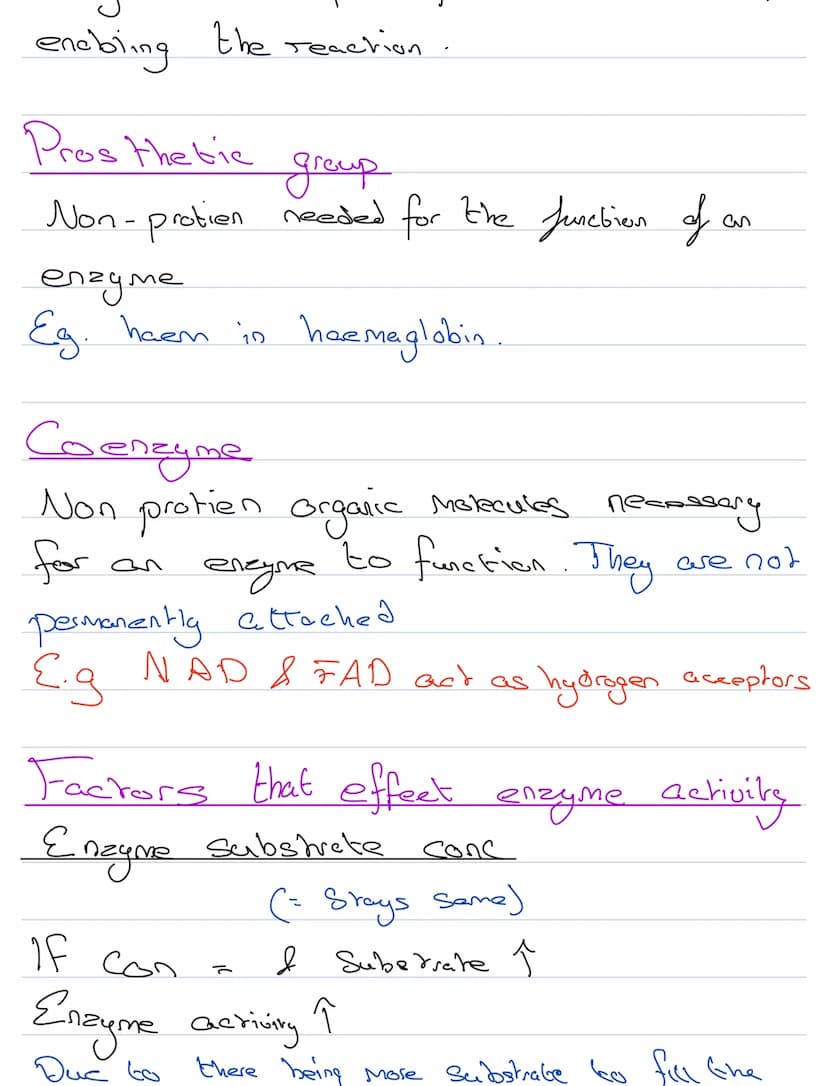 enabling the reaction.
Prosthetic group
Non-protien needed for the function of an
enzyme
Eg. haem in haemaglobin.
Coenzyme
Non protien organic molecules necessary
for an enzyme to function. They are not
permanently attached
E.g NAD & FAD act as hydrogen acceptors
Factors that effect enzyme activity
Enzyme substrate conc
(= Stays same)
If con = & Substrate ↑
Enzyme activity ↑
Due to there being more substrate to fill the